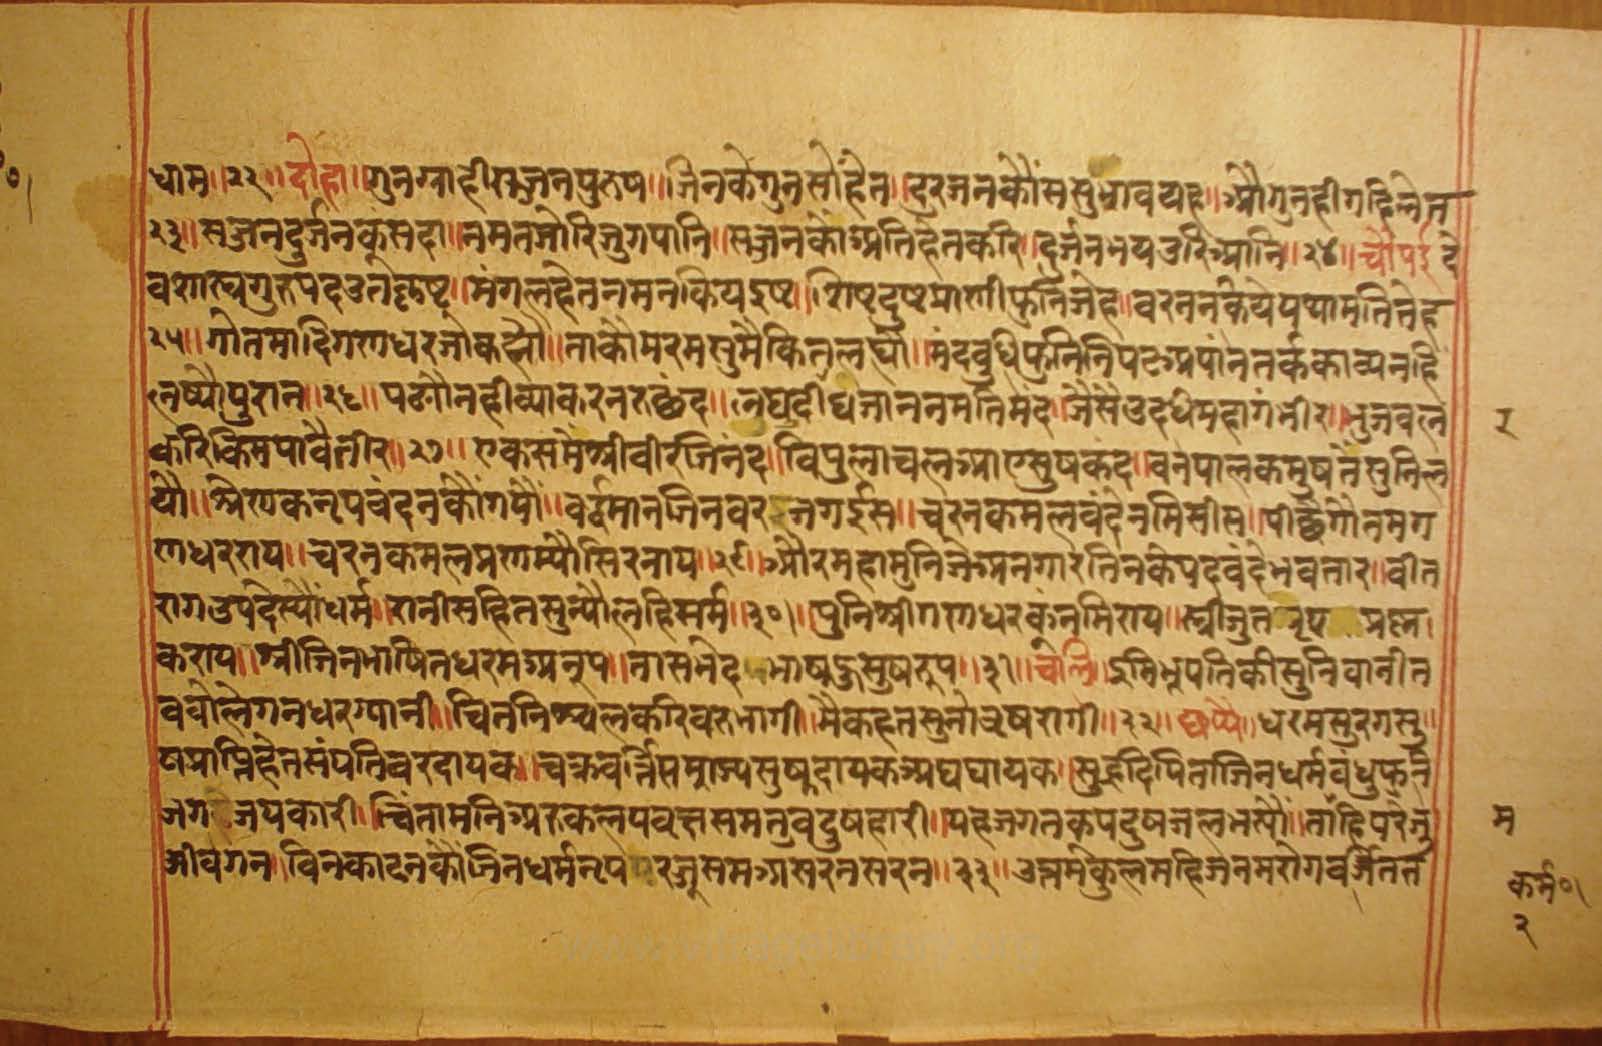 धाम॥२२॥दोहा॥गुनग्राहीसज्जनपुरुष॥जिनकेगुनसौंहेत॥दुरजनकौंससुभावयह॥औगुनहीगहिलेत
२३॥सज्जनदुर्जनकूंसदा॥नमतजोरिजुगपानि॥सज्जनकौंअतिहेतकरि॥दुर्जनभयउरिआनि॥२४॥चौपई॥दे
वशास्त्रगुरुपदउतकृष्ट॥मंगलहेतनमनकियइष्ट॥शिष्टदुष्टप्राणीफुनिजेह॥वरननकियेपथामतितेह
२५॥गोतमादिगणधरजोकह्यौ॥ताकौमरमसुमैकितलह्यौ॥मंदबुधिफुनिनिपटअपांनतर्ककाव्यनहि
लष्यौपुरान॥२६॥पढ्यौनहीव्याकरनरुछंद॥लघुदीर्घजाननमतिमंद॥जैसैंउदधिमहागंभीर॥भुजबल
करिकिमपावैतीर॥२७॥एकसमेंश्रीवीरजिनंद॥विपुलाचलआएसुषकंद॥वनपालकमुषतैंसुनिल
यौ॥श्रेण्यकनृपवंदनकौंगयौं॥वर्द्धमानजिनवर जगईस॥चरनकमलवंदेनमिसीस॥पीछैगौतमग
णधरराय॥चरनकमलप्रणम्यौसिरनाय॥२९॥औरमहामुनिजेअनगारतिनकेपदवंदैभवतार॥वीत
रागउपदेस्यौंधर्म॥रानीसहितसुन्यौलहिसर्म॥३०॥पुनिश्रीगणधरकूंनमिराय॥स्त्रीजुतनृप प्रश्न
कराय॥श्रीजिनभाषितधरमअनूप॥तासभेद भाषहुसुषरूप॥३१॥चौलि॥इतिभूपतिकीसुनिवानीत
वबोलैगनधरग्यानी॥चितनिश्चलकरिवरुभागी॥मैकहतसुनौवृषरागी॥३२॥छप्पै॥धरमसुरगसु
षप्राप्तिहेतसंपतिवरदायक॥चक्रवर्त्तिसमुराज्यसुषदायकअघघायक॥सुहृदपिताजिनधर्मवंधुफुनि
जग जयकारी॥चिंतामनिअरुकलपवृक्षसमतुवदुषहारी॥यहजगतकूपदुषजलभर्यौ॥ताहिपरेजु
जीवगन॥विनकाढनकौंजिनधर्मनृप रजूसमआसरनसरन॥३३॥उत्तमकुलमहिजनमरोगवर्जितत
र
म
कर्म०।
२